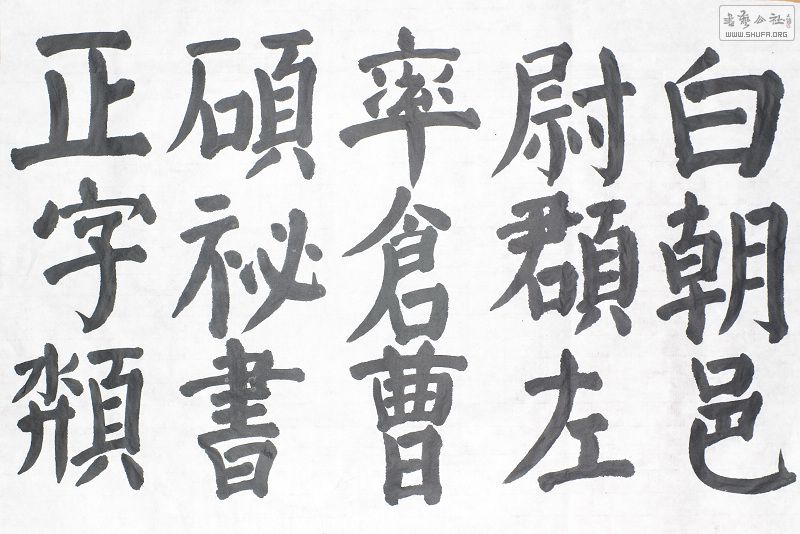 白朝邑
尉頵左
率倉曹
碩祕書
正字頮
書藝公社
WWW.SHUFA.ORG